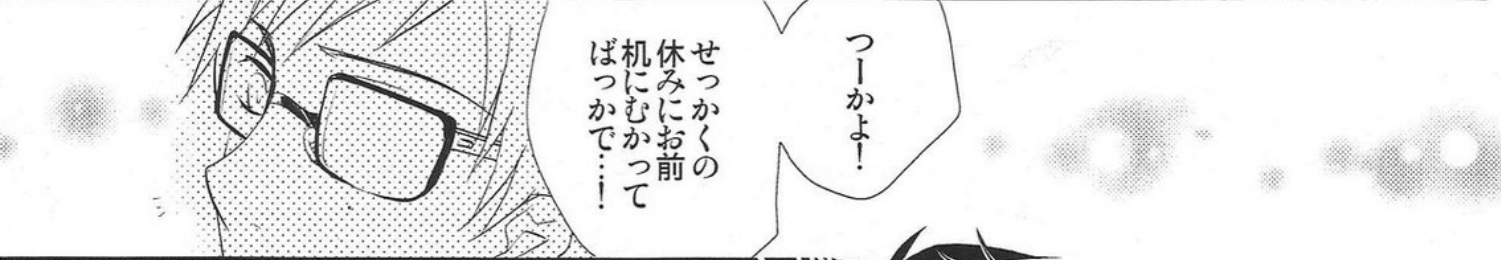 つーかよ！
せっかくの
休みにお前
机にむかって
ばっかで…！